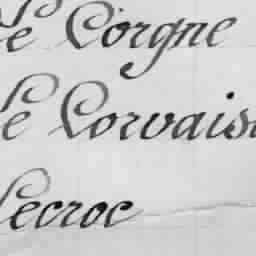 Le Corgne
Le Corvaisi
Lecroc